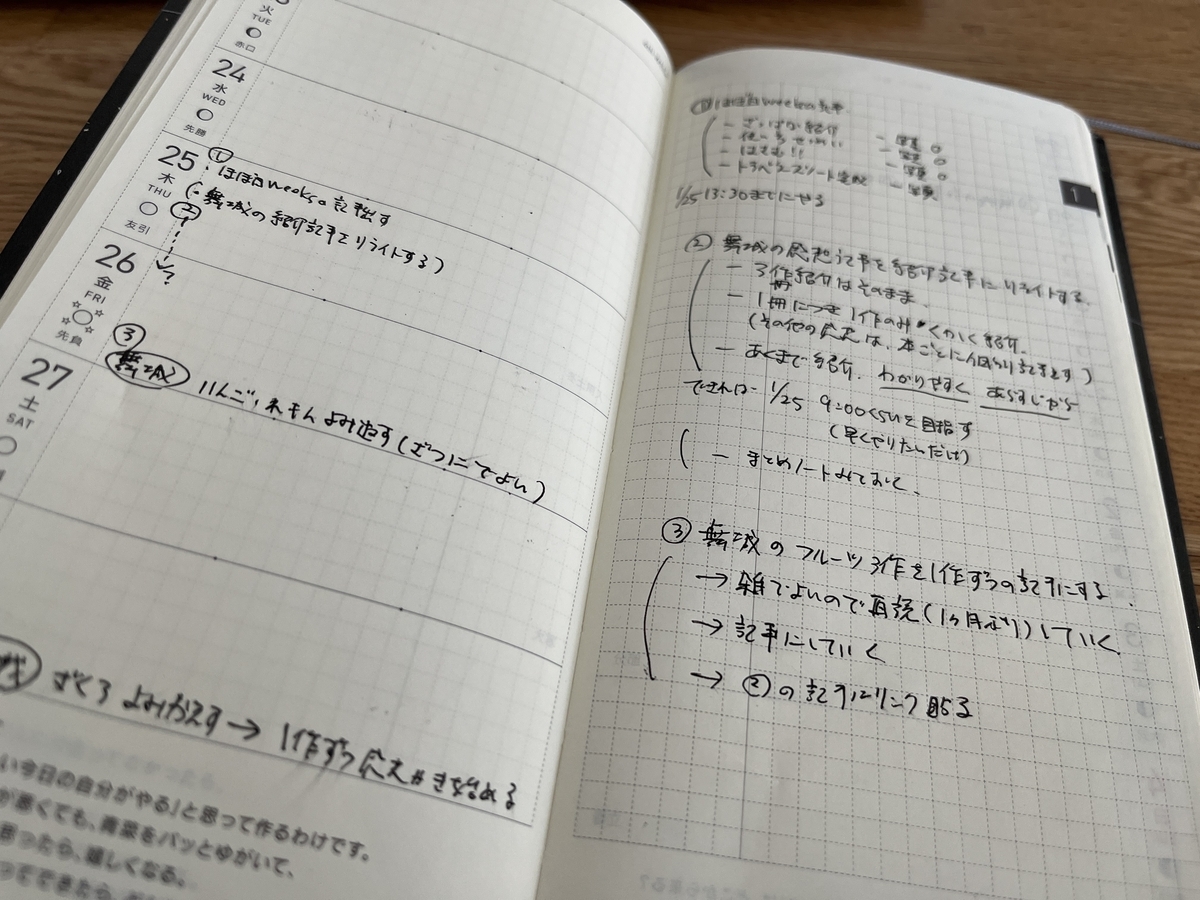 火
TUE
赤口
24
水
WED
先勝
25
木
THU
友引
① ほぼ日weeksの記事出す
② (舞城の紹介記事をリライトする)
?
26
金
FRI
先負
27
土
SAT
③
舞城 りんご、れもん よみ返す(ざつにでよい)
ざくろ よみかえす→ 1作ずつ 感想書き始める
い今日の自分がやる」と思って作るわけです。
が悪くても、青菜をパッとゆがいて、
思ったら、嬉しくなる。
ってできたら、
1
① ほぼ日weeksの記事
- ざっぱな紹介 - 写真 o
- 使いみち - 写真 o
- はても!! - 写真 o
- トラベラーズノート - 写真
1/25 13:30までにやる
② 舞城の感想記事を紹介記事にリライトする.
- 3作紹介はそのまま.
- 1冊につき1作のみ くわしく紹介.
(その他の感想は、本ごとに 記事出す)
- あくまで紹介. わかりやすく あらすじから
できれば 1/25 9:00くらいを目指す
(早くやりたいだけ)
- まとめノートみておく.
③ 舞城の フルーツ3作を1作ずつの記事にする.
→ 雑でよいので再読(1ヶ月ぶり)していく
→ 記事にしていく
→ ②の記事にリンク貼る